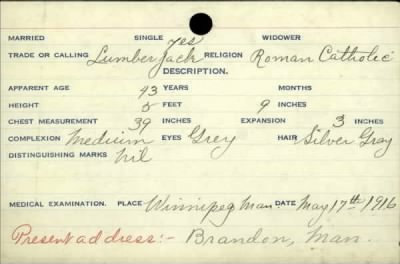 MARRIED SINGLE yes WIDOWER
TRADE OR CALLING Lumber Jack RELIGION Roman Catholic
DESCRIPTION.
APPARENT AGE 43 YEARS MONTHS
HEIGHT 5 FEET 9 INCHES
CHEST MEASUREMENT 39 INCHES EXPANSION 3 INCHES
COMPLEXION Medium EYES Grey HAIR Silver Gray
DISTINGUISHING MARKS Nil
MEDICAL EXAMINATION. PLACE Winnipeg Man. DATE May 17th 1916
Present address:- Brandon, Man.